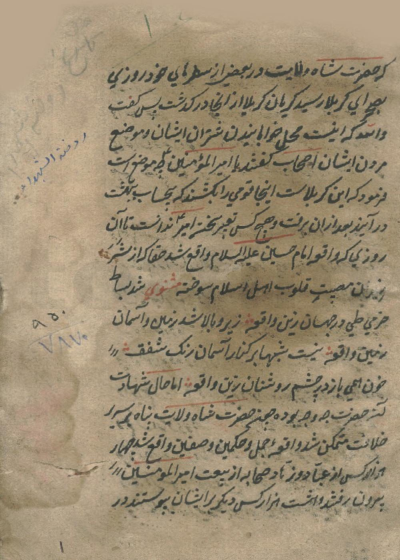 که حضرت شاه ولایت در بعضی از سفرهای خود روزی
بصحرای کربلا رسید گریان کربلا از انجا در گذشت پس گفت
والله که اینست محل خوابانیدن شتران ایشان و موضع
مردن ایشان اصحاب گفتند یا امیرالمؤمنین این چه موضع است
فرمود که این کربلاست اینجا قومی را بکشند که بیحساب ببهشت
در آیند بعد از ان برفت و هیچ کس تعبیر سخن امیر ندانست تا آن
روزی که واقعه امام حسین علیه السلام واقع شد حقا که از شرر
نیران مصیبت قلوب اهل اسلام سوخته مثنوی شد بساط
خرمی طی در جهان زین واقعه زیر و بالا شد زمین و آسمان
زین واقعه نیست شبها بر کنار آسمان رنگ شفق
خون همی بارد ز چشم روشنان زین واقعه اما حال شهادت
حضرت چون حضرت شاه ولایت پناه بر سریر
خلافت متمکن شد واقعه جمل و حکمین و صفین واقع شد چهار
هزار کس از عباد و زهاد صحابه از بیعت امیرالمؤمنین
بیرون رفتند و هشت هزار کس دیگر بر ایشان پیوستند در
روضة الشهداء
٩٥٠
٧٨٧٠
١